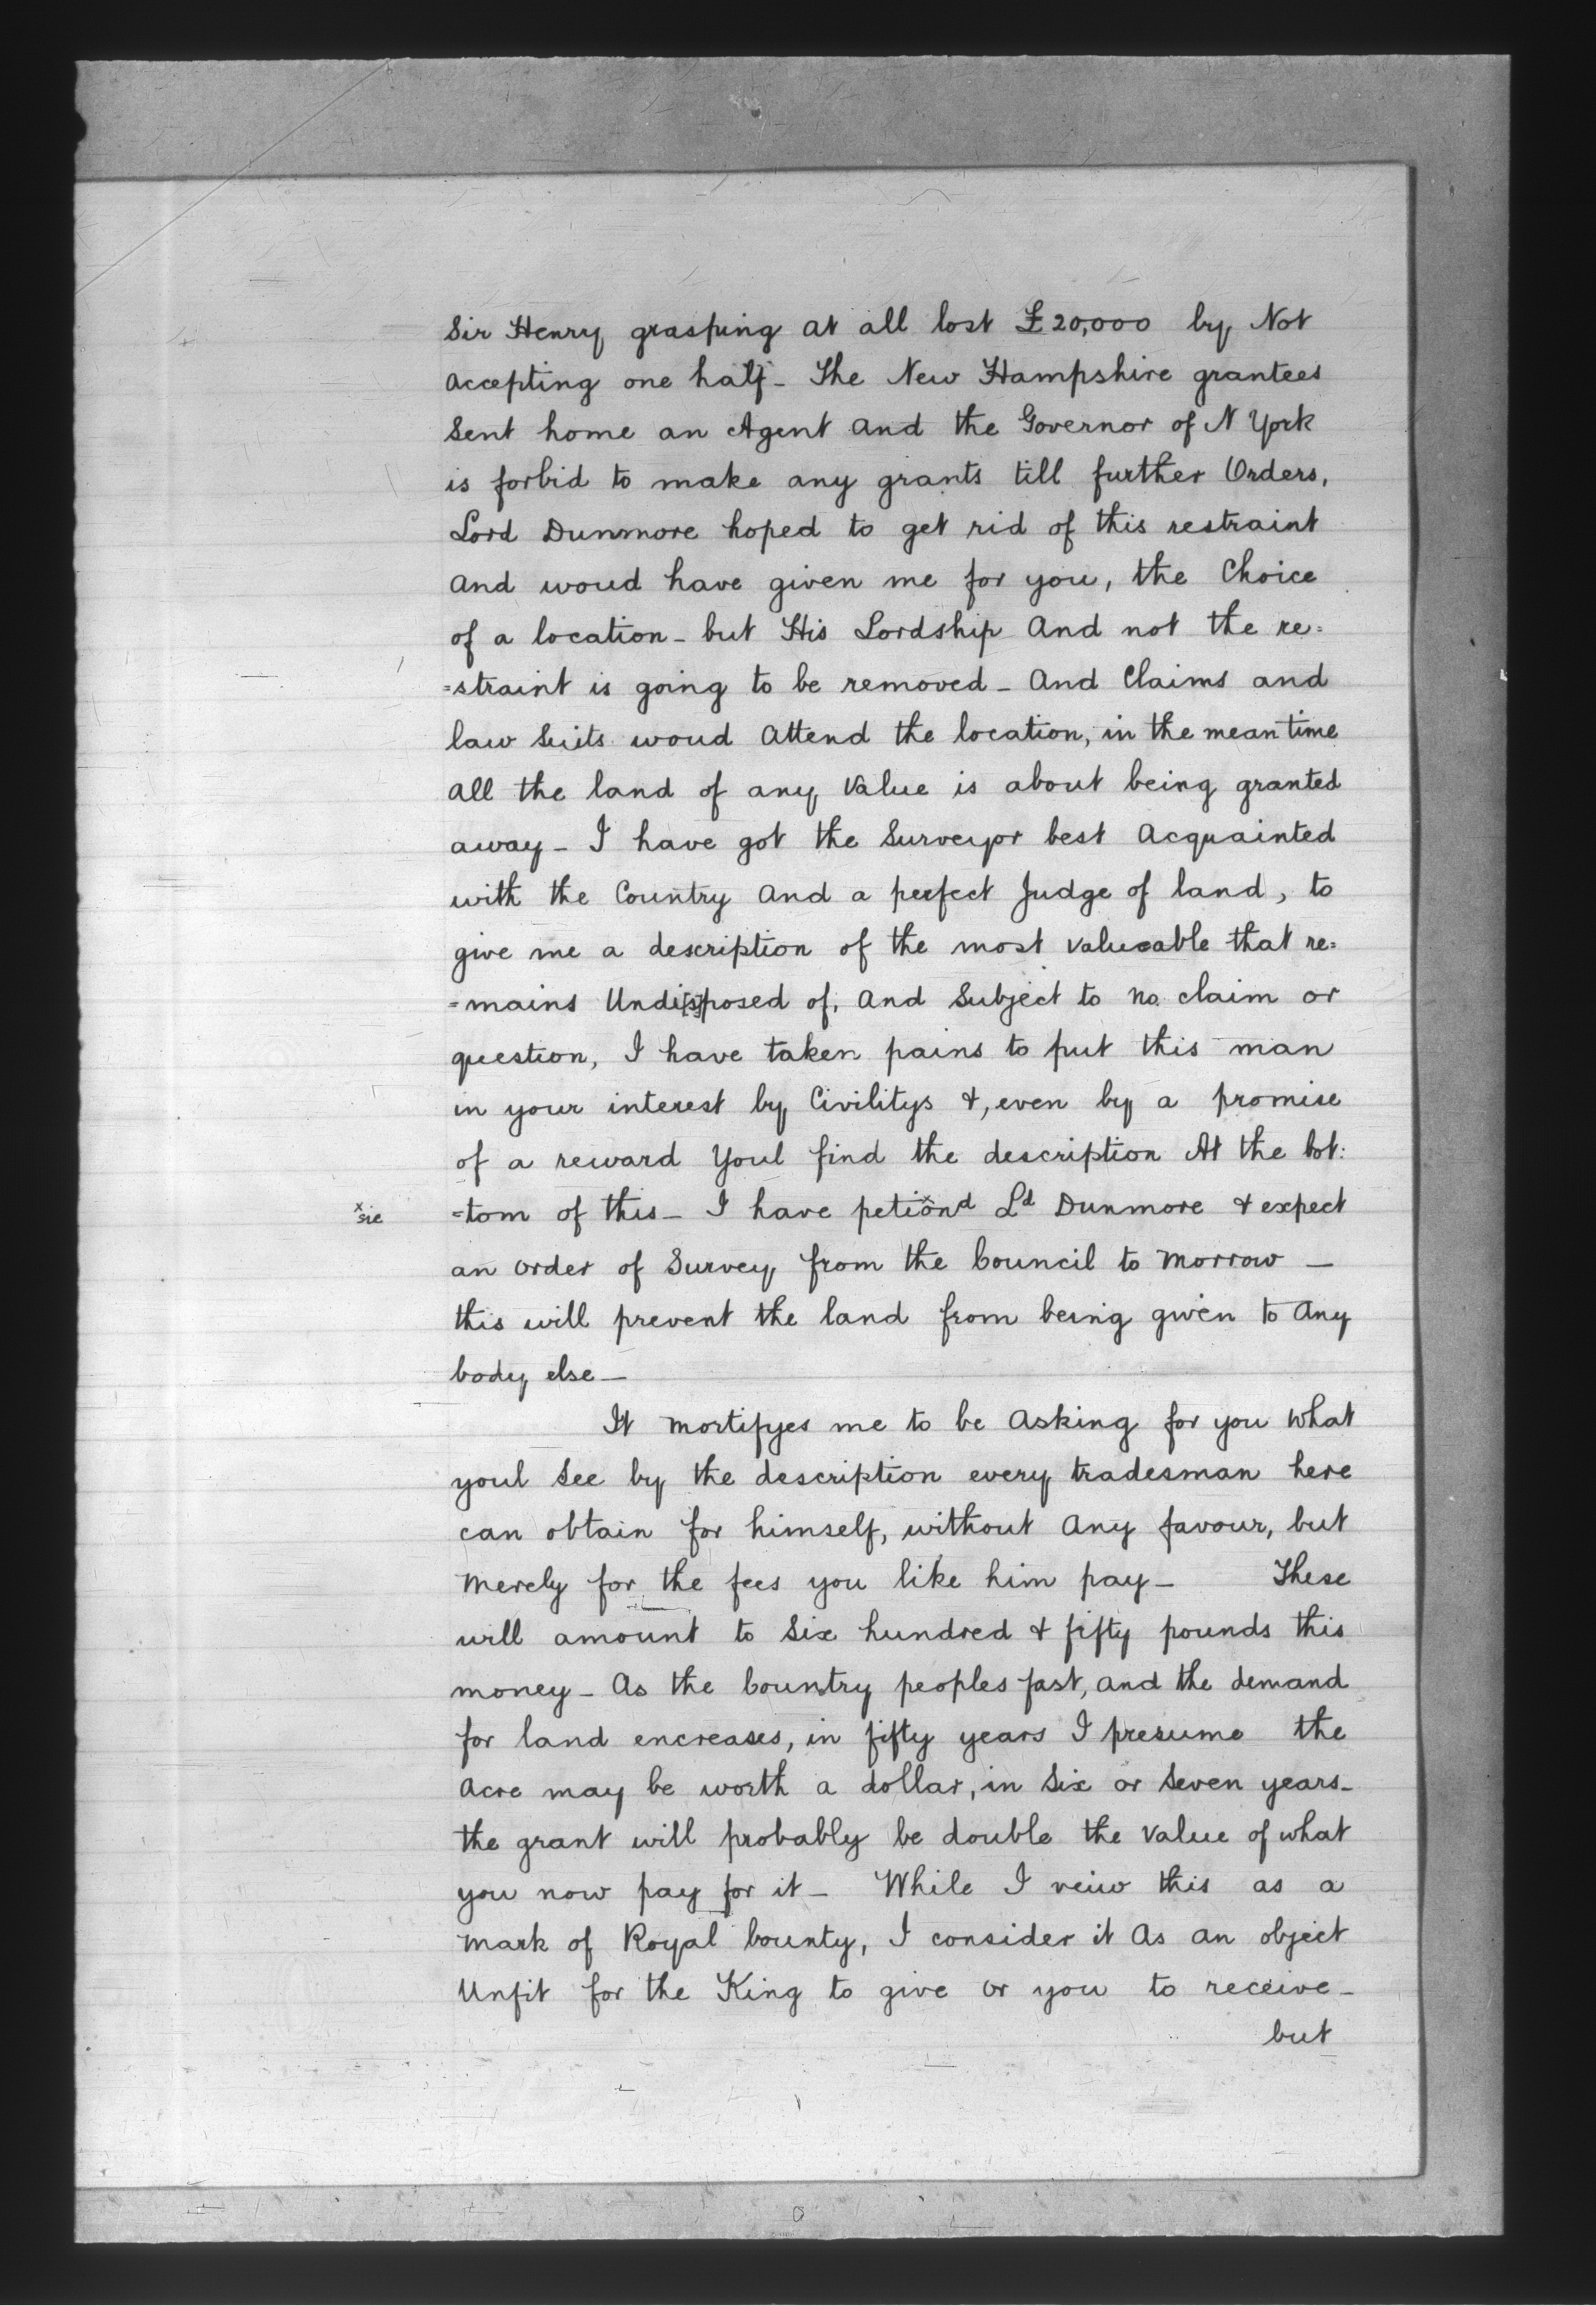 Sir Henry grasping at all lost £20,000 by Not
accepting one half- The New Hampshire grantees
Sent home an Agent and the Governor of N York
is forbid to make any grants till further Orders,
Lord Dunmore hoped to get rid of this restraint
and woud have given me for you, the Choice
of a location- but His Lordship and not the re=
=straint is going to be removed- And Claims and
law Suits woud attend the location, in the mean time
all the land of any Value is about being granted
away- I have got the Surveyor best acquainted
with the Country and a perfect Judge of land, to
give me a description of the most valueable that re=
=mains Undi[s]posed of, and Subject to no claim or
question, I have taken pains to put this man
in your interest by Civilitys &, even by a promise
of a reward Youl find the description At the bot:
x sic =tom of this- I have petionxd Ld Dunmore & expect
an order of Survey from the Council to morrow —
this will prevent the land from being given to any
body else—
It mortifyes me to be asking for you what
youl See by the description every tradesman here
can obtain for himself, without any favour, but
merely for the fees you like him pay- These
will amount to Six hundred & fifty pounds this
money- As the Country peoples fast, and the demand
for land encreases, in fifty years I presume the
acre may be worth a dollar, in Six or Seven years-
the grant will probably be double the value of what
you now pay for it- While I veiw this as a
mark of Royal bounty, I consider it as an object
Unfit for the King to give or you to receive-
but